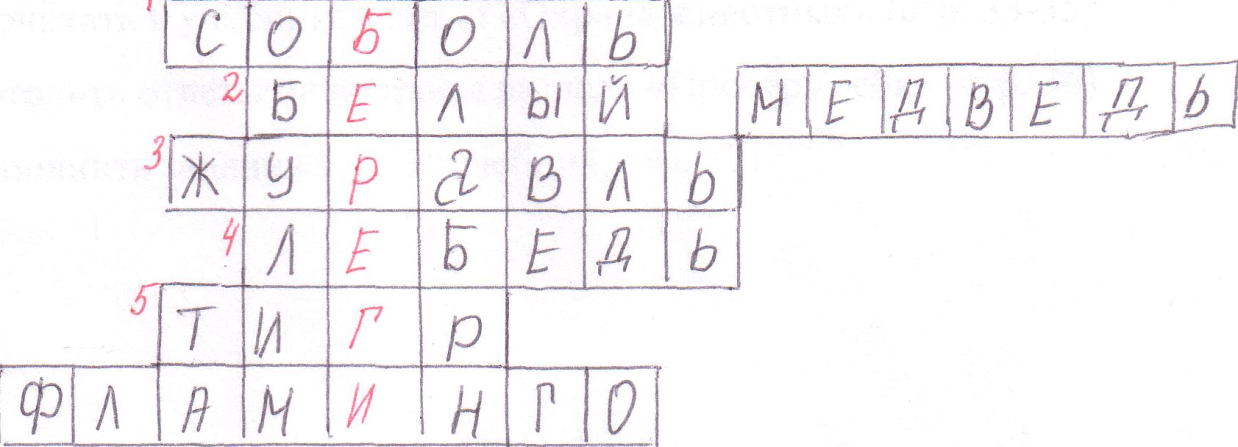 1 СОБОЛЬ
2 БЕЛЫЙ МЕДВЕДЬ
3 ЖУРАВЛЬ
4 ЛЕБЕДЬ
5 ТИГР
ФЛАМИНГО